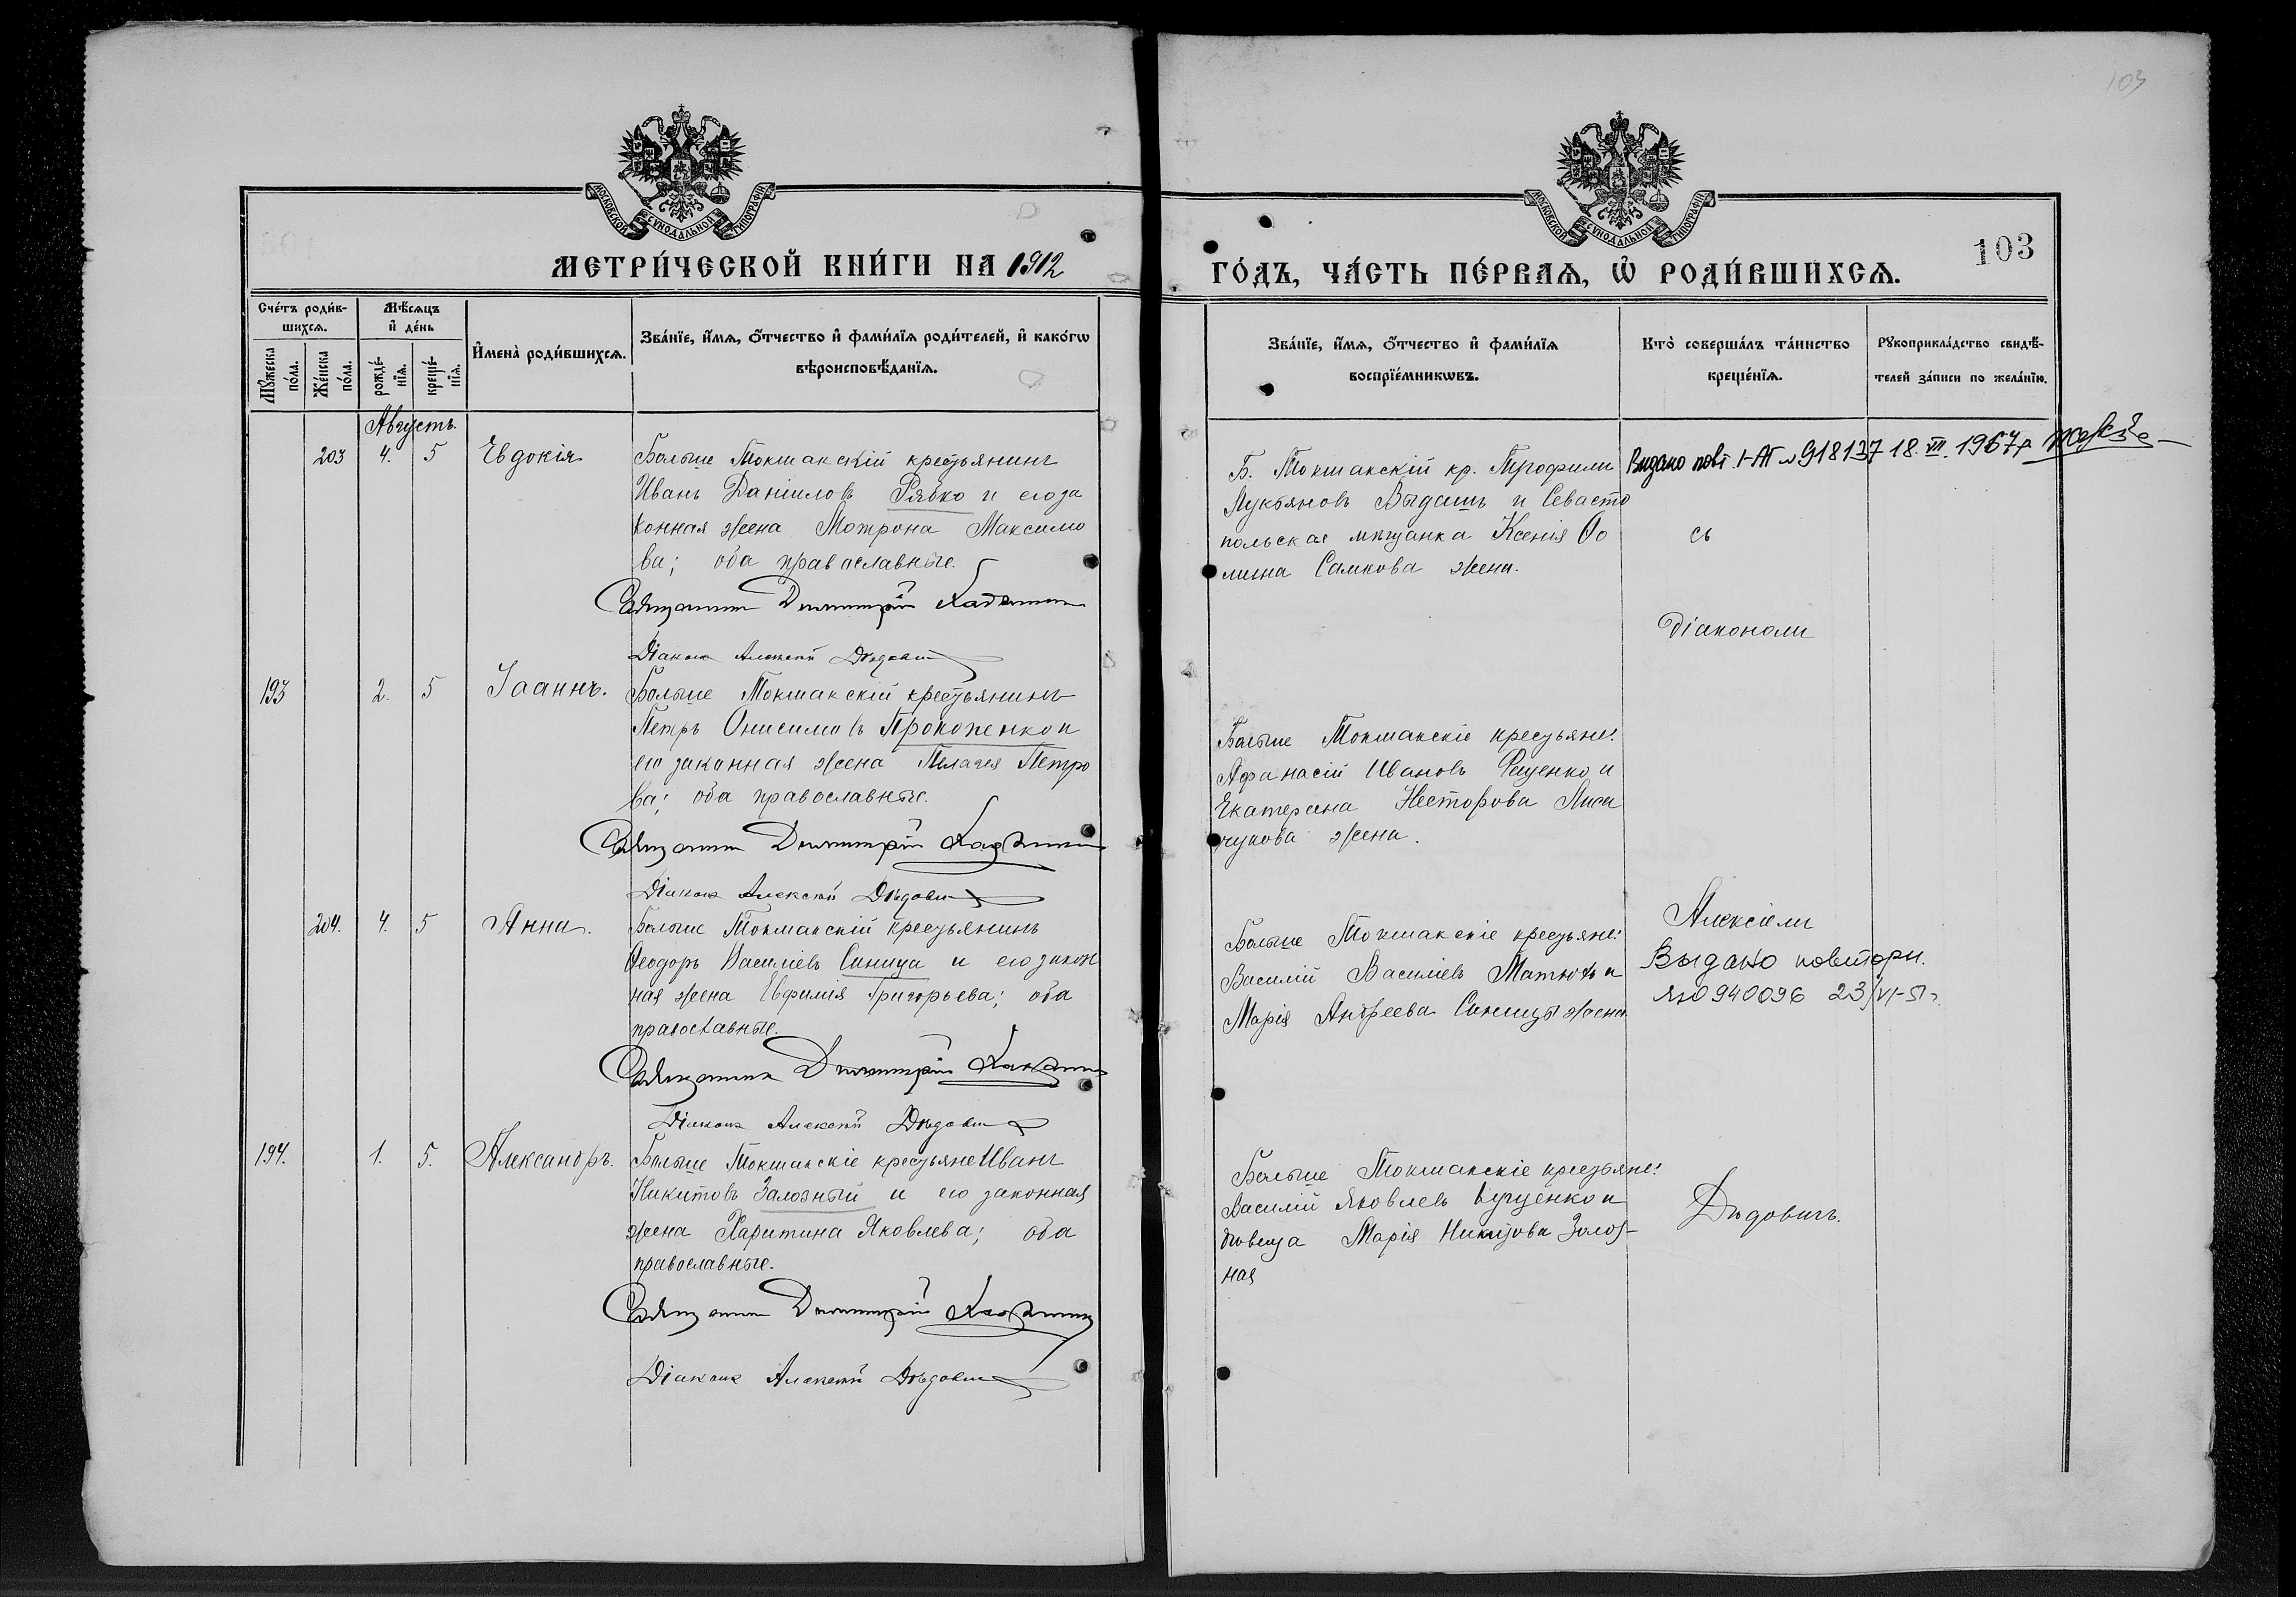 103
МОСКОВСКОЙ СУНОДАЛЬНОЙ ТИПОГРАФІИ
МОСКОВСКОЙ СУНОДАЛЬНОЙ ТИПОГРАФІИ
103
МЕТРИ́ЧЕСКОЙ КНИ́ГИ НА 1912
ГО́ДЪ, ЧА́СТЬ ПЕ́РВАѦ, Ѡ҆ РОДИ́ВШИХСѦ.
Сче́тъ роди́в-
шихсѧ.
Мѣ́сѧцъ
и҆ де́нь
Мꙋ́жеска
по́ла.
Же́нска
по́ла.
рожде́-
нїѧ.
креще́-
нїѧ.
И҆мена̀ роди́вшихсѧ.
Зва́нїе, и҆́мѧ, ѻ҆́тчество и҆ фами́лїѧ роди́телей, и҆ како́гѡ
вѣроисповѣ́данїѧ.
Зва́нїе, и҆́мѧ, ѻ҆́тчество и҆ фами́лїѧ
воспрїе́мникѡвъ.
Кто̀ соверша́лъ та́инство
креще́нїѧ.
Рꙋкоприкла́дство свидѣ́-
телей за́писи по жела́нїю.
Августъ.
203 4. 5 Евдокія
Больше Токмакскій крестьянинъ
Иванъ Даніиловъ Рябко и его за
конная жена Мотрона Максимо
ва; оба православные.
Священникъ Димитрій
Діаконъ Алексѣй Дѣдовичъ
Б. Токмакскій кр. Трофимъ
Лукьяновъ и Севасто
польская мѣщанка Ксенія Ѳо
мина Самкова жена.
Видано повт. I-АП № 918137 18.VII.1967р
съ
Діакономъ
193 2. 5 Іоаннъ.
Больше Токмакскій крестьянинъ
Петръ Онисимовъ Прокопенко и
его законная жена Пелагея Петро
ва; оба православные.
Священникъ Димитрій
Діаконъ Алексѣй Дѣдовичъ
Больше Токмакскіе крестьяне:
Афанасій Ивановъ и
Екатерина Несторова Лиси
чукова жена.
204. 4. 5 Анна.
Больше Токмакскій крестьянинъ
Ѳеодоръ Василіевъ Синица и его закон
ная жена Евфимія Григорьева; оба
православные.
Священникъ Димитрій
Діаконъ Алексѣй Дѣдовичъ
Больше Токмакскіе крестьяне:
Василій Василіевъ Матюха и
Марія Андреева Синицы жена
Алексіемъ
Выдано повторн.
ЯЮ 940096 23/VI-51г.
194. 1. 5. Александръ.
Больше Токмакскіе крестьяне Иванъ
Никитовъ Залозный и его законная
жена Харитина Яковлева; оба
православные.
Священникъ Димитрій
Діаконъ Алексѣй Дѣдовичъ
Больше Токмакскіе крестьяне:
Василій Яковлевъ и
дѣвица Марія Никитова Залоз-
ная
Дѣдовичъ.